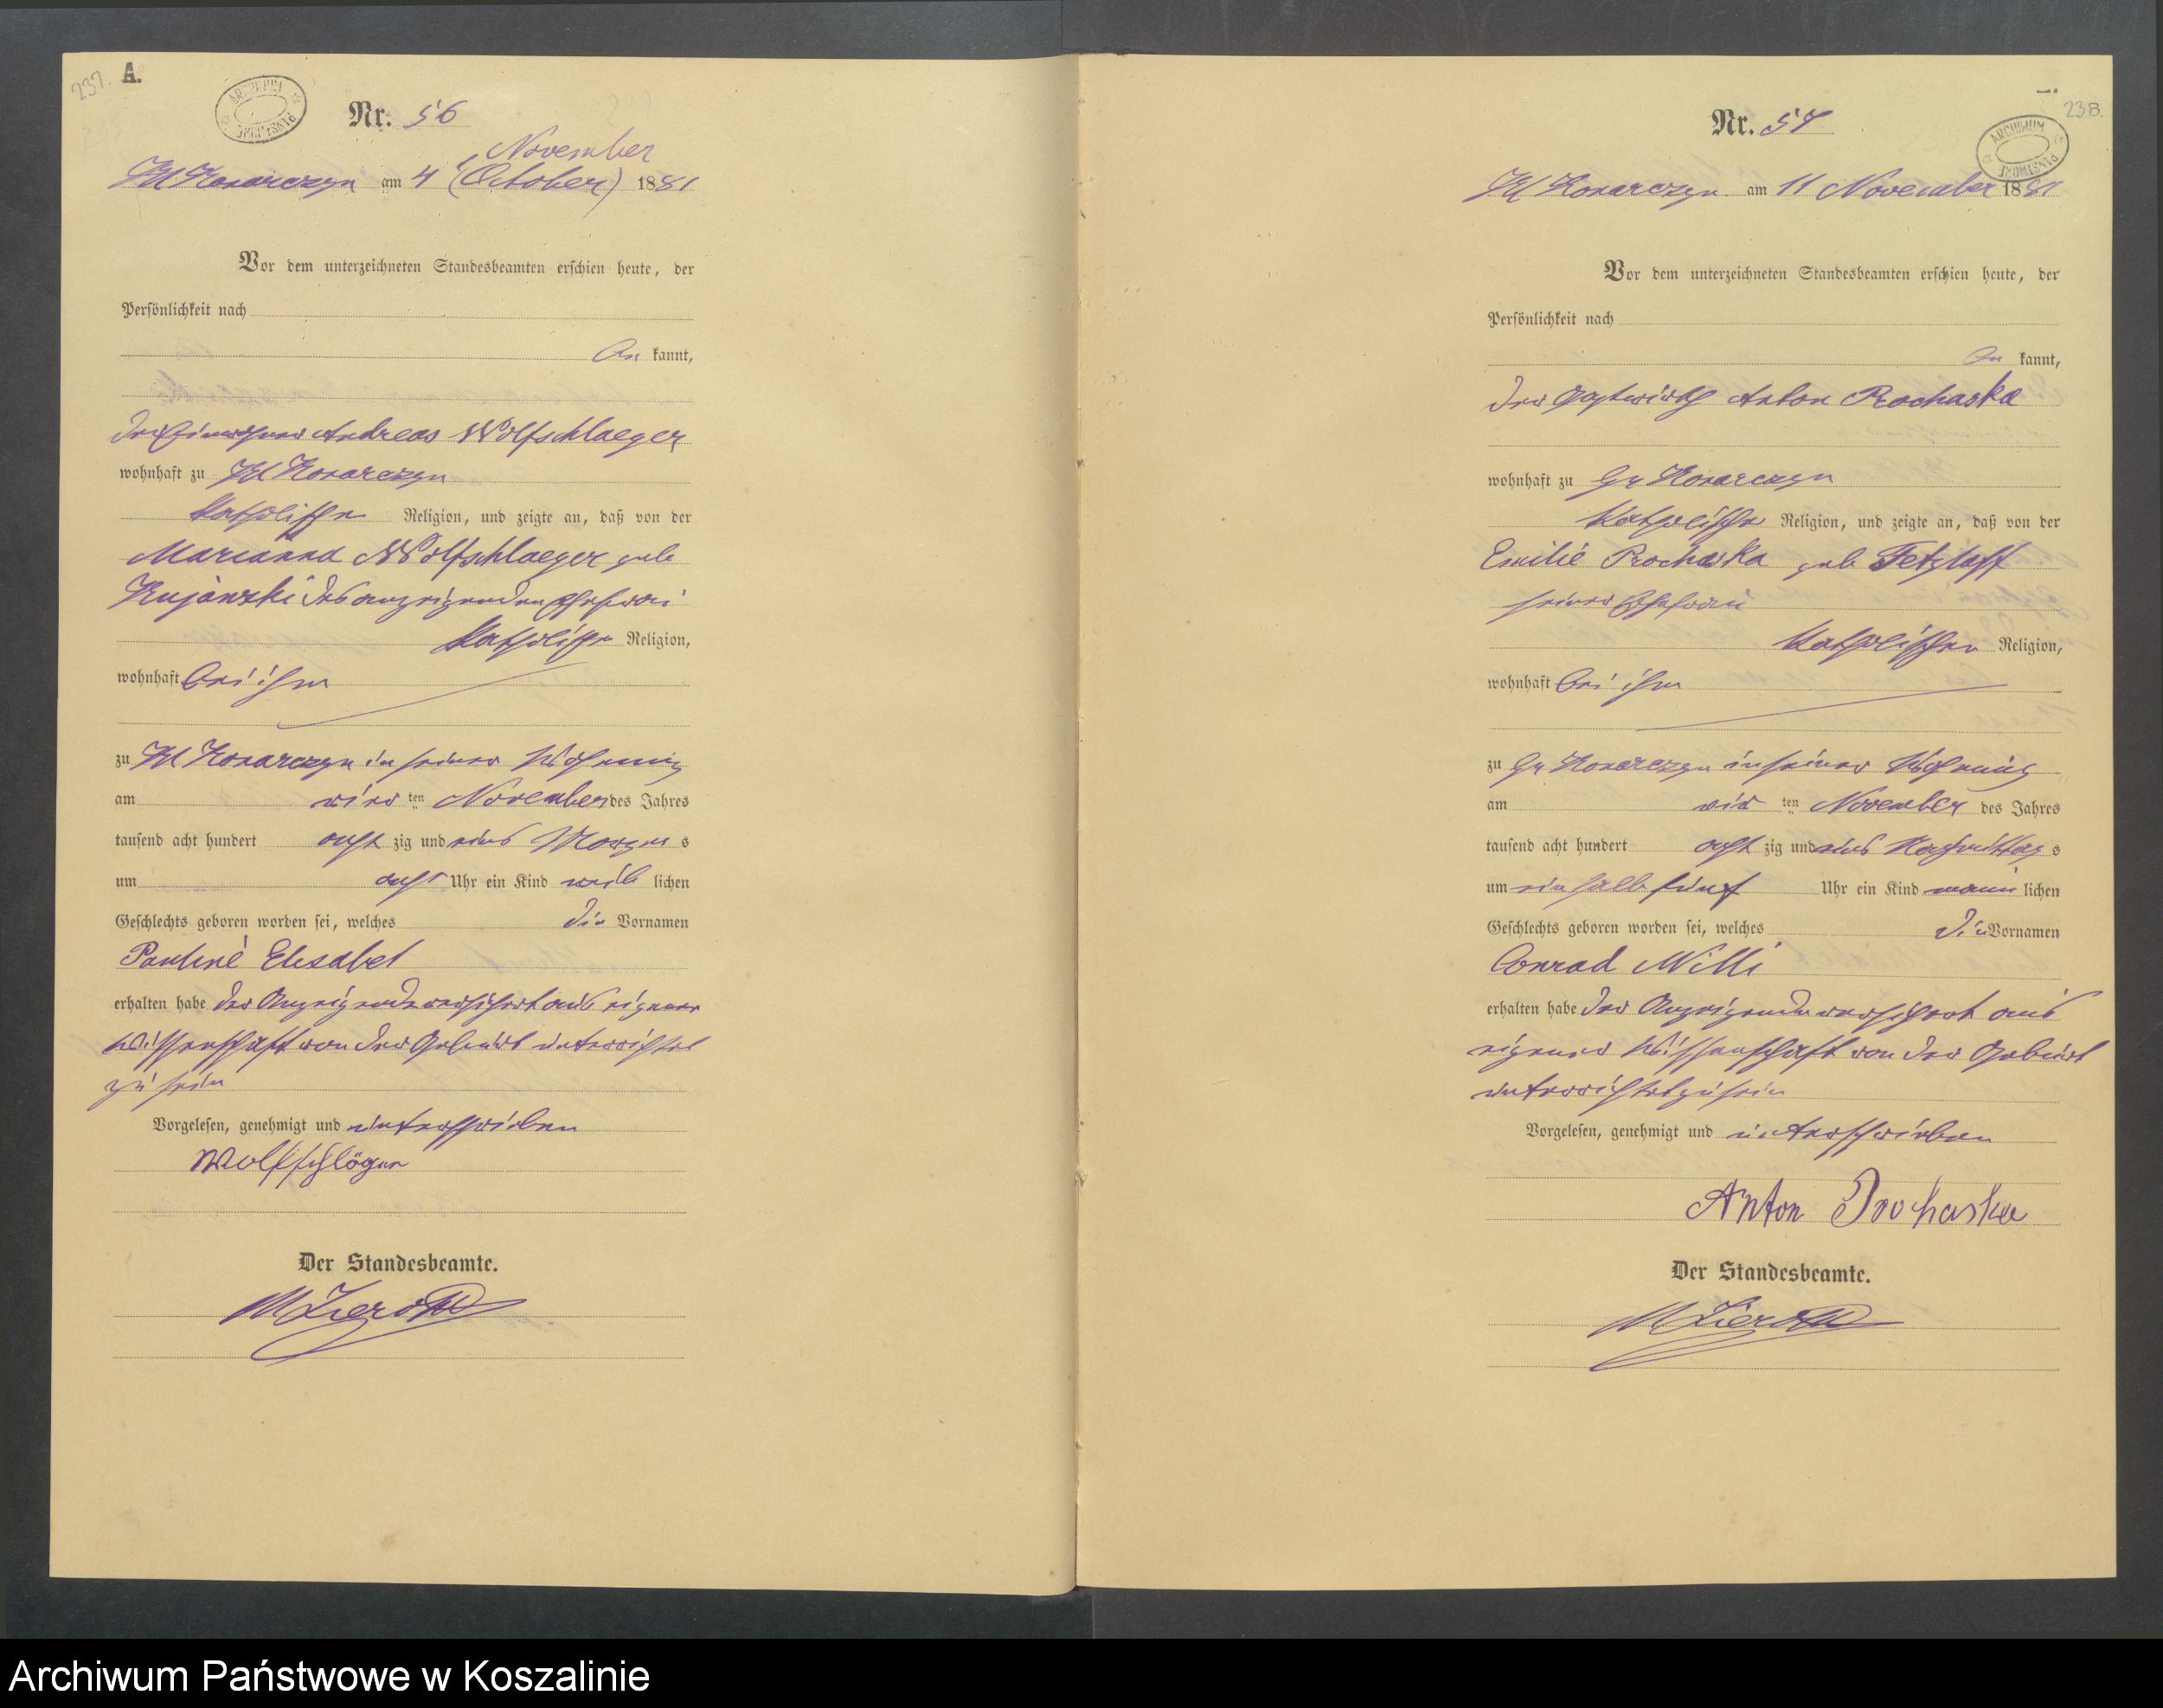 237. A.
ARCHIWUM PAŃSTWOWE
Nr. 56
November
Kl Konarczyn am 4 (October) 1881
Vor dem unterzeichneten Standesbeamten erschien heute, der
Persönlichkeit nach
be kannt,
der Einwohner Andreas Wolfschlaeger
wohnhaft zu Kl Konarczyn
katholische Religion, und zeigte an, daß von der
Marianna Wolfschlaeger geb
Kujawski des anzeigenden Ehefrau
katholische Religion,
wohnhaft bei ihm
zu Kl Konarczyn in seiner Wohnung
am vier ten November des Jahres
tausend acht hundert acht zig und eins Morgen s
um acht Uhr ein Kind weib lichen
Geschlechts geboren worden sei, welches die Vornamen
Pauline Elisabet
erhalten habe der Anzeigende versichert aus eigener
Wissenschaft von der Geburt unterrichtet
zu sein
Vorgelesen, genehmigt und unterschrieben
Wolfschläger
Der Standesbeamte.
238.
ARCHIWUM PAŃSTWOWE
Nr. 57
Kl Konarczyn am 11 November 1881
Vor dem unterzeichneten Standesbeamten erschien heute, der
Persönlichkeit nach
be kannt,
der Gastwirth Anton Prochaska
wohnhaft zu Gr Konarczyn
katholische Religion, und zeigte an, daß von der
Emilie Prochaska geb Tetzlaff
seiner Ehefrau
katholischen Religion,
wohnhaft bei ihm
zu Gr Konarczyn in seiner Wohnung
am vier ten November des Jahres
tausend acht hundert acht zig und eins Nachmittag s
um ein halb fünf Uhr ein Kind männ lichen
Geschlechts geboren worden sei, welches die Vornamen
Conrad Willi
erhalten habe der Anzeigende versichert aus
eigener Wissenschaft von der Geburt
unterrichtet zu sein
Vorgelesen, genehmigt und unterschrieben
Anton Prochaska
Der Standesbeamte.
Archiwum Państwowe w Koszalinie